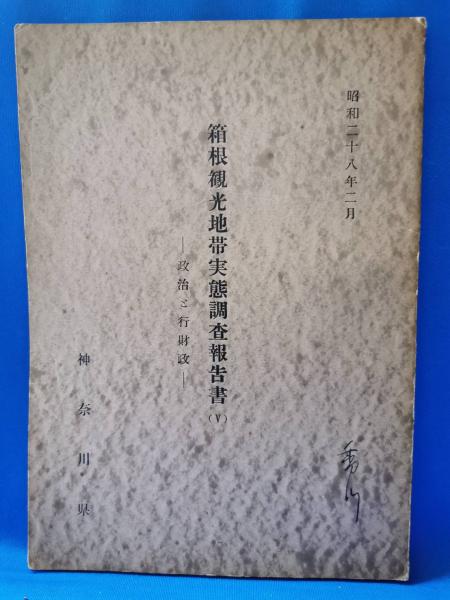 昭和二十八年二月
箱根観光地帯実態調査報告書(V)
―政治と行財政―
神奈川県